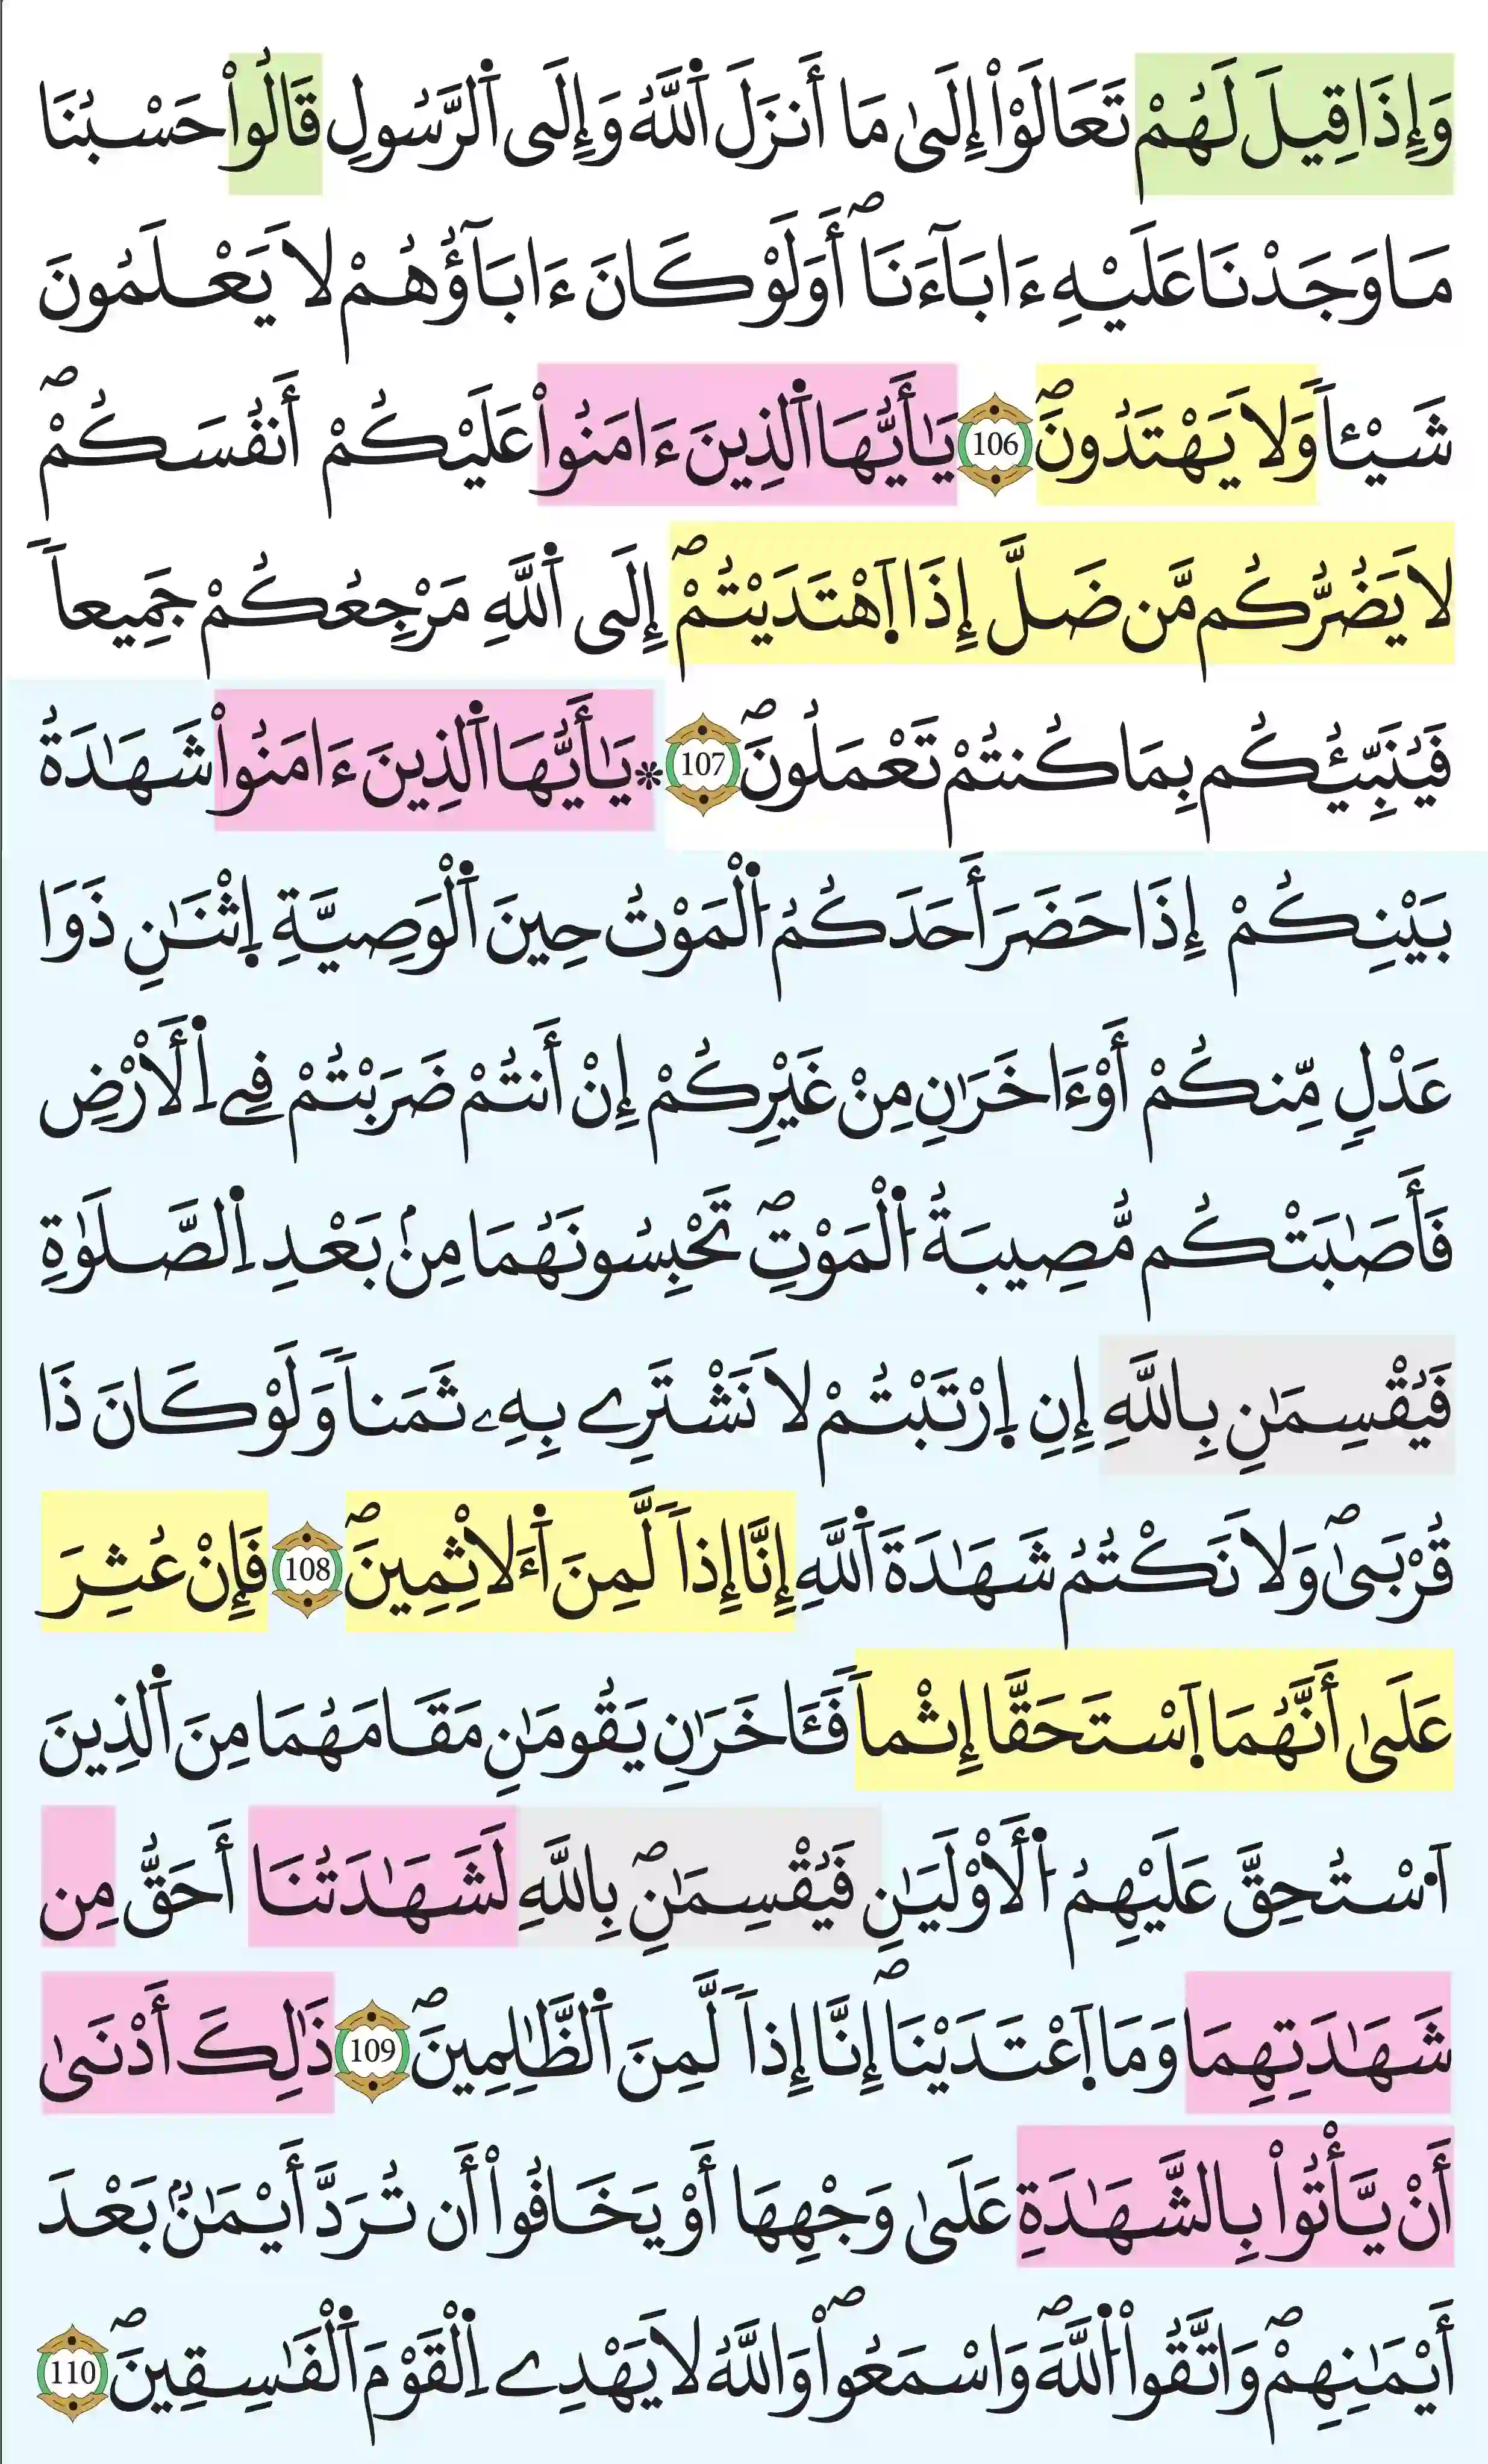 وَإِذَا قِيلَ لَهُمْ تَعَالَوْاْ إِلَىٰ مَا أَنزَلَ ٱللَّهُ وَإِلَى ٱلرَّسُولِ قَالُواْ حَسْبُنَا
مَا وَجَدْنَا عَلَيْهِ ءَابَآءَنَاۖ أَوَلَوْ كَانَ ءَابَآؤُهُمْ لَا يَعْلَمُونَ
شَيْـٔاٗ وَلَا يَهْتَدُونَۖ 106 يَـٰأَيُّهَا ٱلذِينَ ءَامَنُواْ عَلَيْكُمْ أَنفُسَكُمْۖ
لَا يَضُرُّكُم مَّن ضَلَّ إِذَا ٱهْتَدَيْتُمْۖ إِلَى ٱللَّهِ مَرْجِعُكُمْ جَمِيعاٗ
فَيُنَبِّئُكُم بِمَا كُنتُمْ تَعْمَلُونَۖ 107 * يَـٰأَيُّهَا ٱلذِينَ ءَامَنُواْ شَهَـٰدَةُ
بَيْنِكُمْ إِذَا حَضَرَ أَحَدَكُمُ ٱلْمَوْتُ حِينَ ٱلْوَصِيَّةِ ٱثْنَـٰنِ ذَوَا
عَدْلٍ مِّنكُمْ أَوْ ءَاخَرَٰنِ مِنْ غَيْرِكُمْ إِنْ أَنتُمْ ضَرَبْتُمْ فِے ٱلْأَرْضِ
فَأَصَـٰبَتْكُم مُّصِيبَةُ ٱلْمَوْتِۖ تَحْبِسُونَهُمَا مِنۢ بَعْدِ ٱلصَّلَوٰةِ
فَيُقْسِمَـٰنِ بِاللَّهِ إِنِ ٱرْتَبْتُمْ لَا نَشْتَرِے بِهِۦ ثَمَناٗ وَلَوْ كَانَ ذَا
قُرْبَىٰۖ وَلَا نَكْتُمُ شَهَـٰدَةَ ٱللَّهِ إِنَّا إِذاٗ لَّمِنَ ٱلْأَثِمِينَۖ 108 فَإِنْ عُثِرَ
عَلَىٰ أَنَّهُمَا ٱسْتَحَقَّا إِثْماٗ فَـَٔاخَرَٰنِ يَقُومَـٰنِ مَقَامَهُمَا مِنَ ٱلذِينَ
ٱسْتُحِقَّ عَلَيْهِمُ ٱلْأَوْلَيَـٰنِ فَيُقْسِمَـٰنِۖ بِاللَّهِ لَشَهَـٰدَتُنَا أَحَقُّ مِن
شَهَـٰدَتِهِمَا وَمَا ٱعْتَدَيْنَاۖ إِنَّا إِذاٗ لَّمِنَ ٱلظَّـٰلِمِينَۖ 109 ذَٰلِكَ أَدْنَىٰ
أَنْ يَّأْتُواْ بِالشَّهَـٰدَةِ عَلَىٰ وَجْهِهَا أَوْ يَخَافُواْ أَن تُرَدَّ أَيْمَـٰنٌۢ بَعْدَ
أَيْمَـٰنِهِمْۖ وَاتَّقُواْ ٱللَّهَۖ وَاسْمَعُواْۖ وَاللَّهُ لَا يَهْدِے ٱلْقَوْمَ ٱلْفَـٰسِقِينَۖ 110